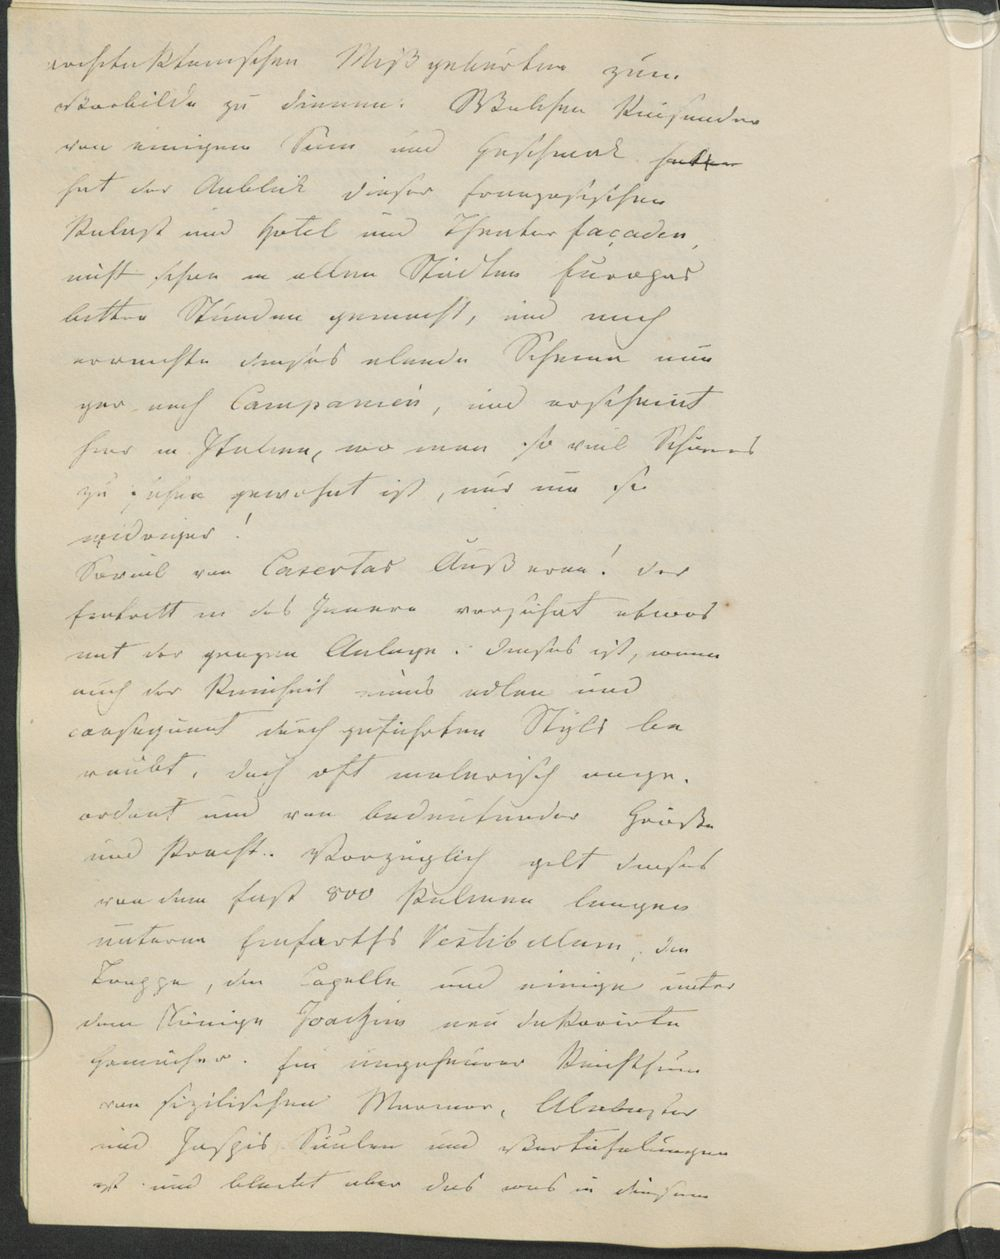 architektonischen Mißgeburten zum
Vorbilde zu dienen. Welchem Reisenden
von einigem Sinn und Geschmack
hat der Anblick dieser französischen
Palast und Hotel und Theater façaden,
nicht schon in allen Städten Europas
bittre Stunden gemacht, und auch
erreichte dieses elende Schema nun
gar auch Campanien, und erscheint
hier in Italien, wo man so viel Schönes
zu sehen gewohnt ist, nur um so
widriger!
Soviel von Casertas Äußeren! der
Eintritt in das Innere versöhnt etwas
mit der ganzen Anlage: dieses ist, wenn
auch der Reinheit eines edlen und
consequent durchgeführten Styls be
raubt, doch oft malerisch ange-
ordnet und von bedeutender Größe
und Pracht. Vorzüglich gilt dieses
von dem fast 800 Palmen langen
unteren Einfarths Vestibulum, der
Treppe, der Capelle und einige unter
dem Könige Joachim neu dekorirte
Gemächer. Ein ungeheurer Reichthum
von sizilischen Marmor, Alabaster
und Jaspis Säulen und Vertäfelungen
ist und bleibt aber das was in diesem